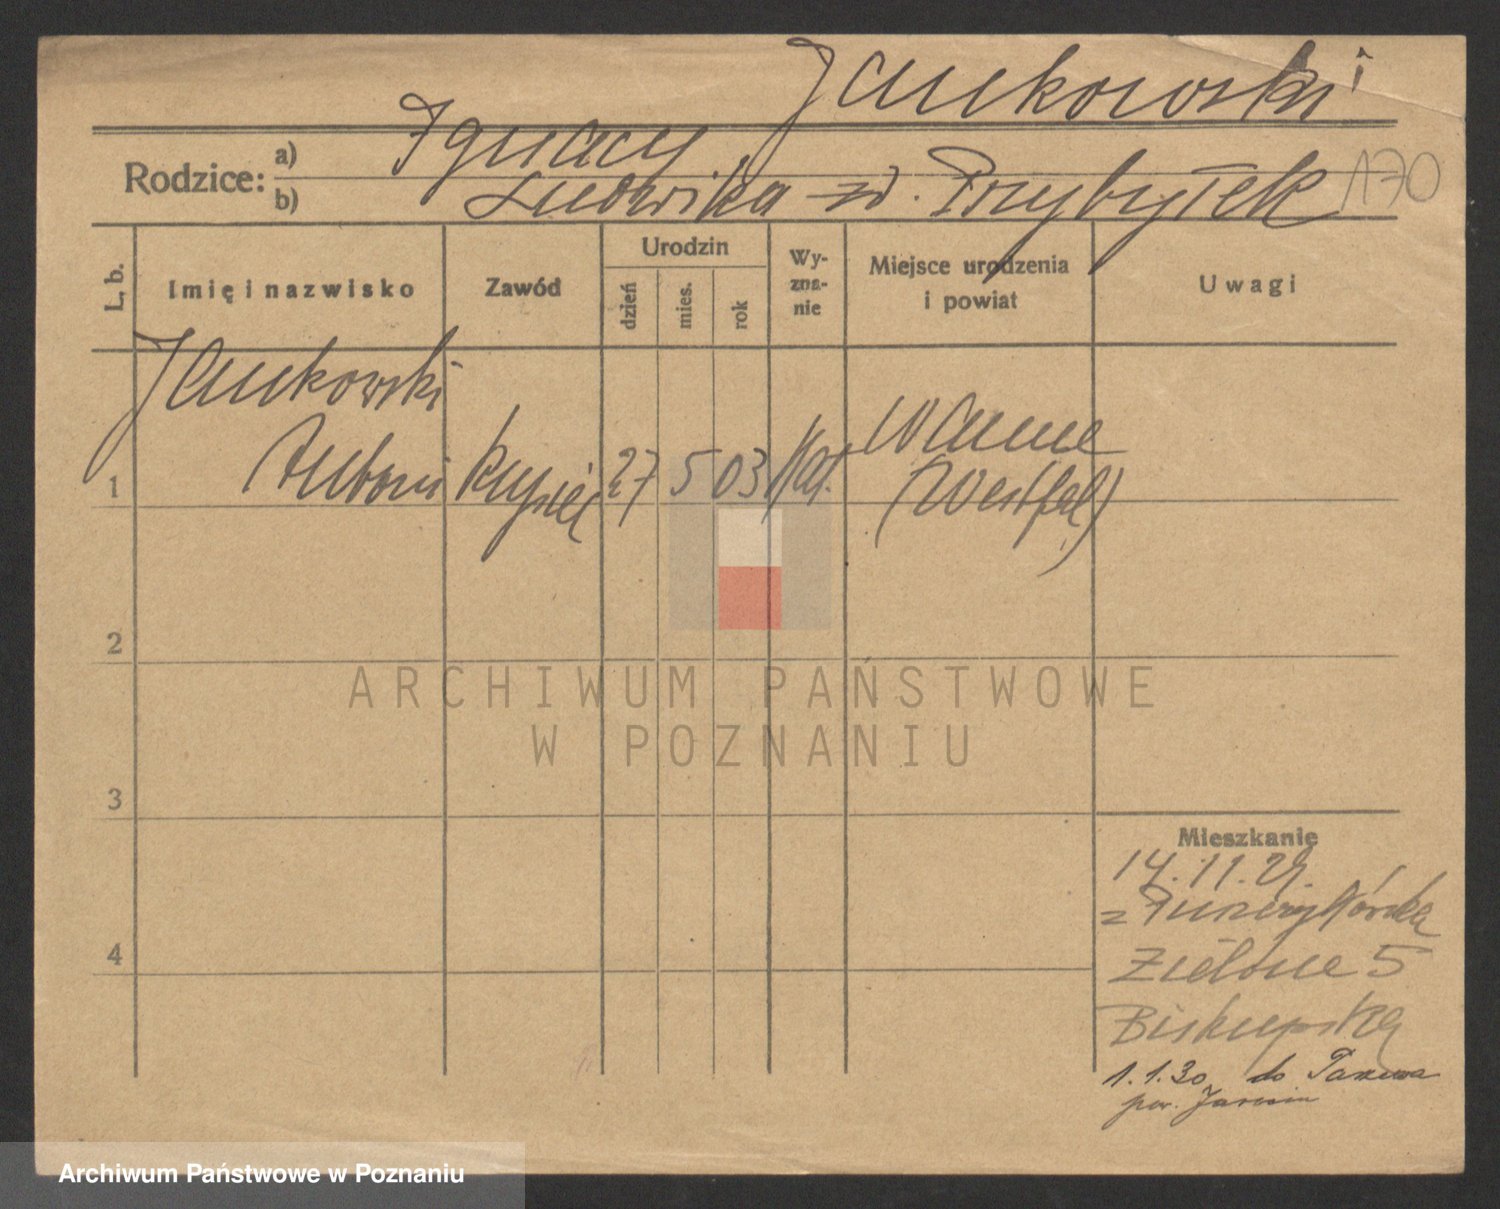 Jankowski
Rodzice: a) Ignacy
b) Ludwika zd. Przybyłek
170
L. b. Imię i nazwisko Zawód Urodzin dzień mies. rok Wyznanie Miejsce urodzenia i powiat Uwagi
Jankowski
1 Antoni 27 5 03 kat. Wanne
(Westfal)
2
3
4
ARCHIWUM PAŃSTWOWE
W POZNANIU
Mieszkanie
14.11.29.
Zielone 5
Biskupska
1.1.30 do
pow. Jarocin
Archiwum Państwowe w Poznaniu